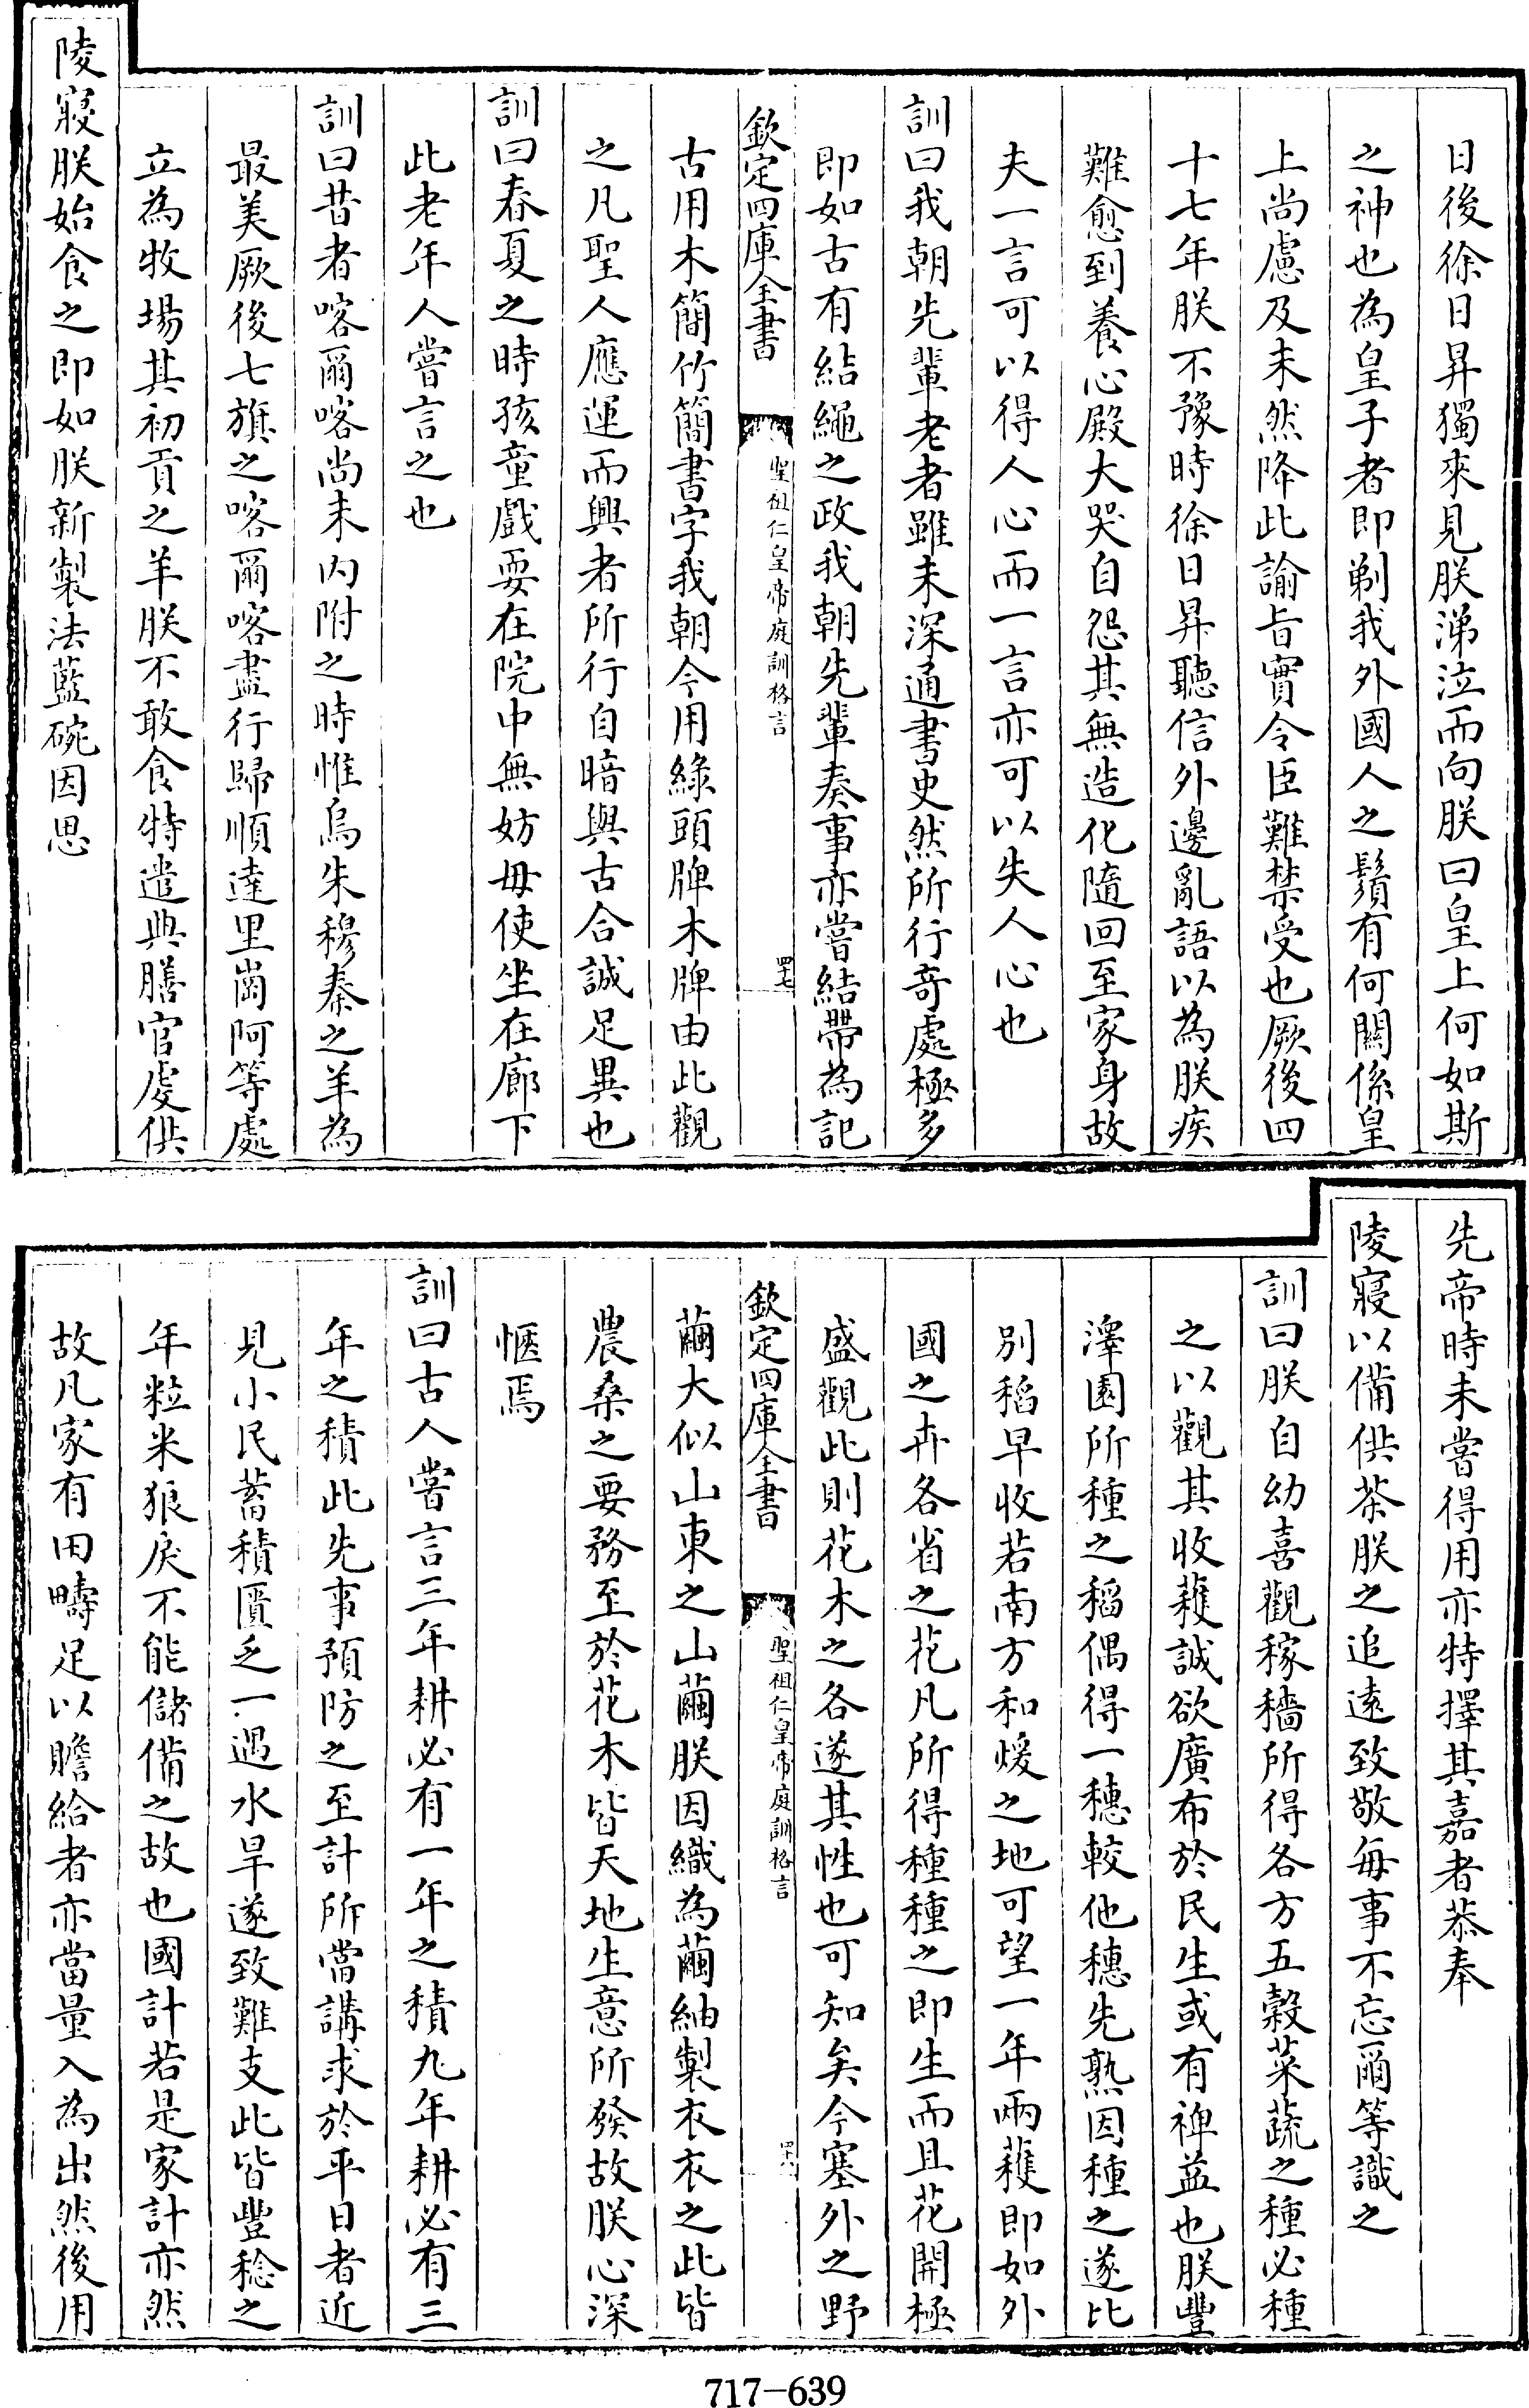 日後徐日昇獨來見朕涕泣而向朕曰皇上何如斯
之神也為皇子者即剃我外國人之鬚有何關係皇
上尚慮及未然降此諭旨實令臣難禁受也厥後四
十七年朕不豫時徐日昇聽信外邊亂語以為朕疾
難愈到養心殿大哭自怨其無造化隨回至家身故
夫一言可以得人心而一言亦可以失人心也
訓曰我朝先輩老者雖未深通書史然所行奇處極多
即如古有結繩之政我朝先輩奏事亦嘗結帶為記
欽定四庫全書
聖祖仁皇帝庭訓格言
四十七
古用木簡竹簡書字我朝今用綠頭牌木牌由此觀
之凡聖人應運而興者所行自暗與古合誠足異也
訓曰春夏之時孩童戲耍在院中無妨毋使坐在廊下
此老年人嘗言之也
訓曰昔者喀爾喀尚未內附之時惟烏朱穆秦之羊為
最美厥後七旗之喀爾喀盡行歸順達里崗阿等處
立為牧場其初貢之羊朕不敢食特遣典膳官虔供
陵寢朕始食之即如朕新製法藍碗因思
先帝時未嘗得用亦特擇其嘉者恭奉
陵寢以備供茶朕之追遠致敬每事不忘爾等識之
訓曰朕自幼喜觀稼穡所得各方五穀菜蔬之種必種
之以觀其收穫誠欲廣布於民生或有裨益也朕豐
澤園所種之稻偶得一穗較他穗先熟因種之遂比
別稻早收若南方和煖之地可望一年兩穫即如外
國之卉各省之花凡所得種種之即生而且花開極
盛觀此則花木之各遂其性也可知矣今塞外之野
欽定四庫全書
聖祖仁皇帝庭訓格言
四十八
繭大似山東之山繭朕因織為繭紬製衣衣之此皆
農桑之要務至於花木皆天地生意所發故朕心深
愜焉
訓曰古人嘗言三年耕必有一年之積九年耕必有三
年之積此先事預防之至計所當講求於平日者近
見小民蓄積匱乏一遇水旱遂致難支此皆豐稔之
年粒米狼戾不能儲備之故也國計若是家計亦然
故凡家有田疇足以贍給者亦當量入為出然後用
717-639